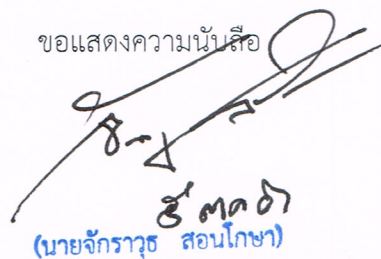 ขอแสดงความนับถือ
(นายจักราวุธ สอนโกษา)